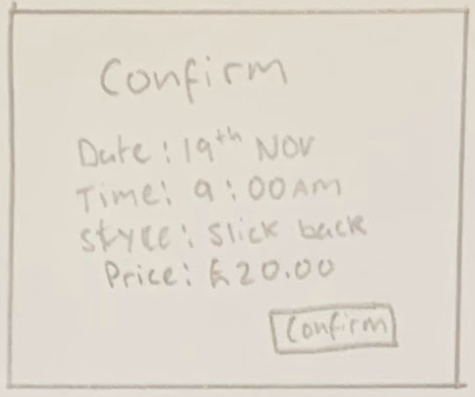 Confirm
Date: 19th NOV
Time: 9:00AM
Style: Slick back
Price: £20.00
Confirm